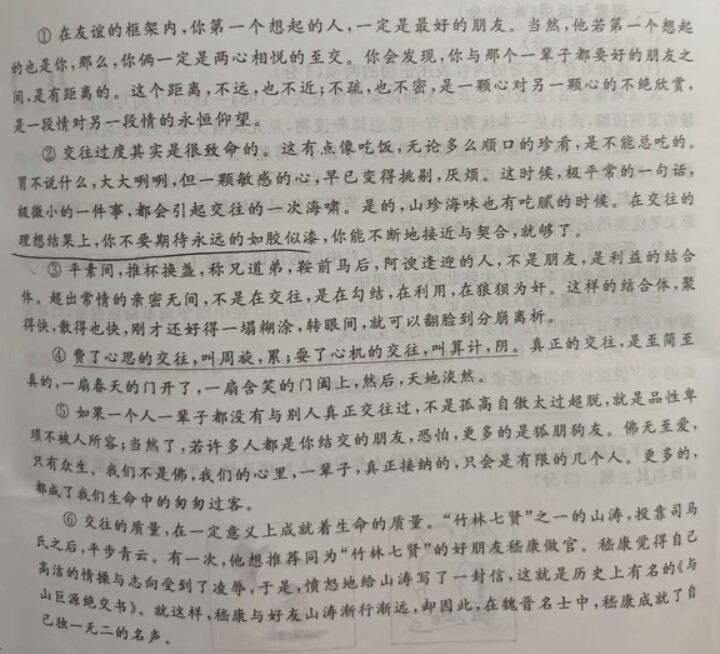 ①在友谊的框架内,你第一个想起的人,一定是最好的朋友。当然,他若第一个想起
的也是你,那么,你俩一定是两心相悦的至交。你会发现,你与那个一辈子都要好的朋友之
间,是有距离的。这个距离,不远,也不近;不疏,也不密,是一颗心对另一颗心的不绝欣赏,
是一段情对另一段情的永恒仰望。
②交往过度其实是很致命的。这有点像吃饭,无论多么顺口的珍肴,是不能总吃的。
胃不说什么,大大咧咧,但一颗敏感的心,早已变得挑剔,厌烦。这时候,极平常的一句话,
极微小的一件事,都会引起交往的一次海啸。是的,山珍海味也有吃腻的时候。在交往的
理想结果上,你不要期待永远的如胶似漆,你能不断地接近与契合,就够了。
③平素间,推杯换盏,称兄道弟,鞍前马后,阿谀逢迎的人,不是朋友,是利益的结合
体。超出常情的亲密无间,不是在交往,是在勾结,在利用,在狼狈为奸。这样的结合体,聚
得快,散得也快,刚才还好得一塌糊涂,转眼间,就可以翻脸到分崩离析。
④费了心思的交往,叫周旋,累;耍了心机的交往,叫算计,阴。真正的交往,是至简至
真的,一扇春天的门开了,一扇含笑的门阖上,然后,天地淡然。
⑤如果一个人一辈子都没有与别人真正交往过,不是孤高自傲太过超脱,就是品性卑
琐不被人所容;当然了,若许多人都是你结交的朋友,恐怕,更多的是狐朋狗友。佛无至爱,
只有众生。我们不是佛,我们的心里,一辈子,真正接纳的,只会是有限的几个人。更多的,
都成了我们生命中的匆匆过客。
⑥交往的质量,在一定意义上成就着生命的质量。“竹林七贤”之一的山涛,投靠司马
氏之后,平步青云。有一次,他想推荐同为“竹林七贤”的好朋友嵇康做官。嵇康觉得自己
高洁的情操与志向受到了凌辱,于是,愤怒地给山涛写了一封信,这就是历史上有名的《与
山巨源绝交书》。就这样,嵇康与好友山涛渐行渐远,却因此,在魏晋名士中,嵇康成就了自
己独一无二的名声。